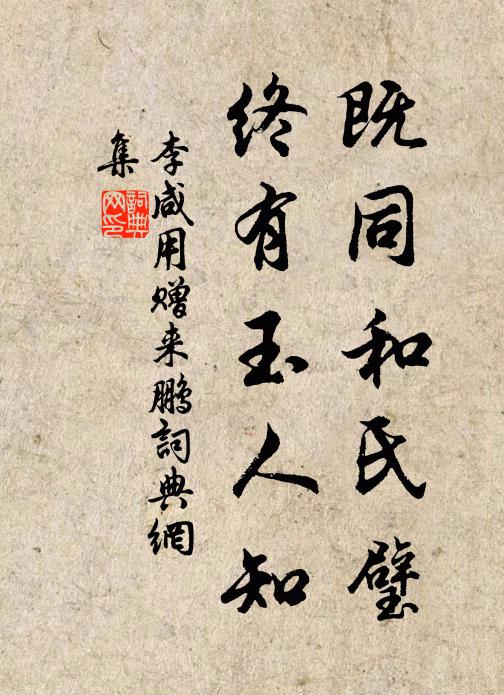 既同和氏璧
终有玉人知
李咸用赠来鹏詞典網
集
詞典
网印